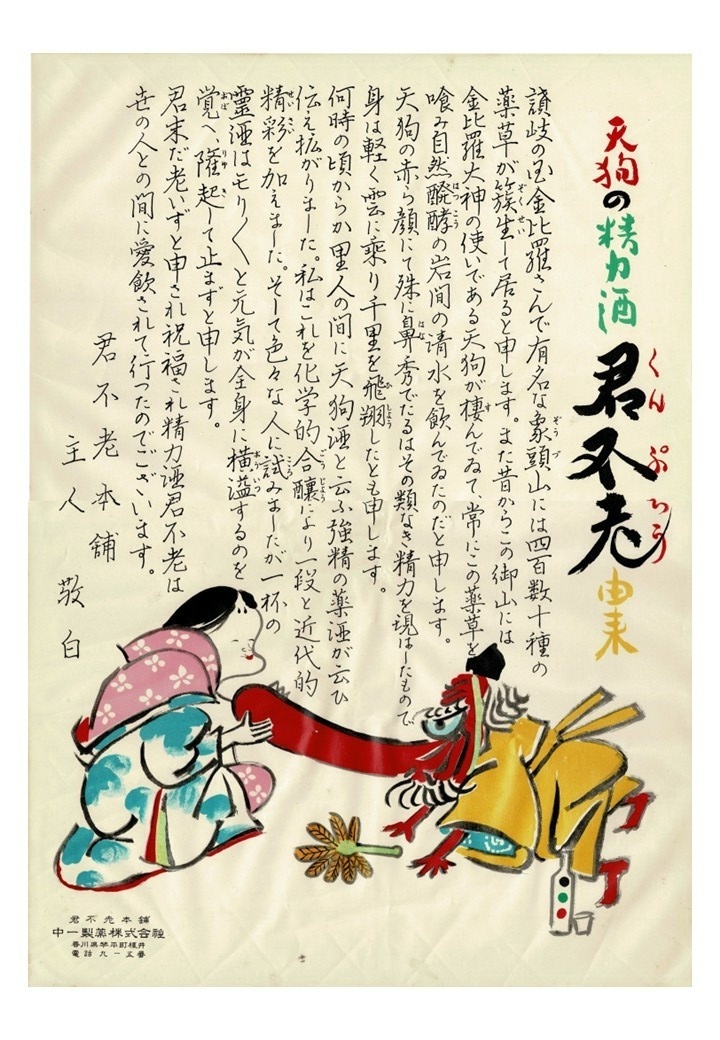 天狗の精力酒
君不老由来
くんぷらう
讃岐の国金比羅さんで有名な象頭山には四百数十種の
ぞうづ
薬草が簇生して居ると申します。また昔からこの御山には
ぞくせい
金比羅大神の使いである天狗が棲んでゐて、常にこの薬草を
す
喰み自然醗酵の岩間の清水を飲んでゐたのだと申します。
はつこう
天狗の赤ら顔にて殊に鼻秀でたるはその類なき精力を現はしたもので
はな
身は軽く雲に乗り千里を飛翔したとも申します。
ひしよう
何時の頃からか里人の間に天狗酒と云ふ強精の薬酒が云ひ
伝え拡がりました。私はこれを化学的合醸により一段と近代的
ごうじよう
精彩を加えました。そして色々な人に試みましたが一杯の
せいさい
こころ
靈酒はモリ〱と元気が全身に横溢するのを
おういつ
覚へ、隆起して止まずと申します。
おぼ
りゆうき
君未だ老いずと申され祝福され精力酒君不老は
世の人との間に愛飲されて行つたのでございます。
君不老本舗
主人 敬白
君不老本舗
中一製薬株式会社
香川県琴平町榎井
電話九一五番